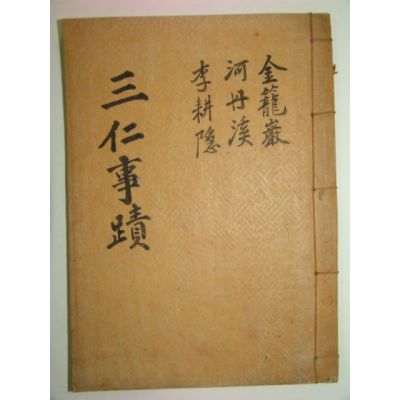 金籠巖
河丹溪
李耕隱
三仁事蹟